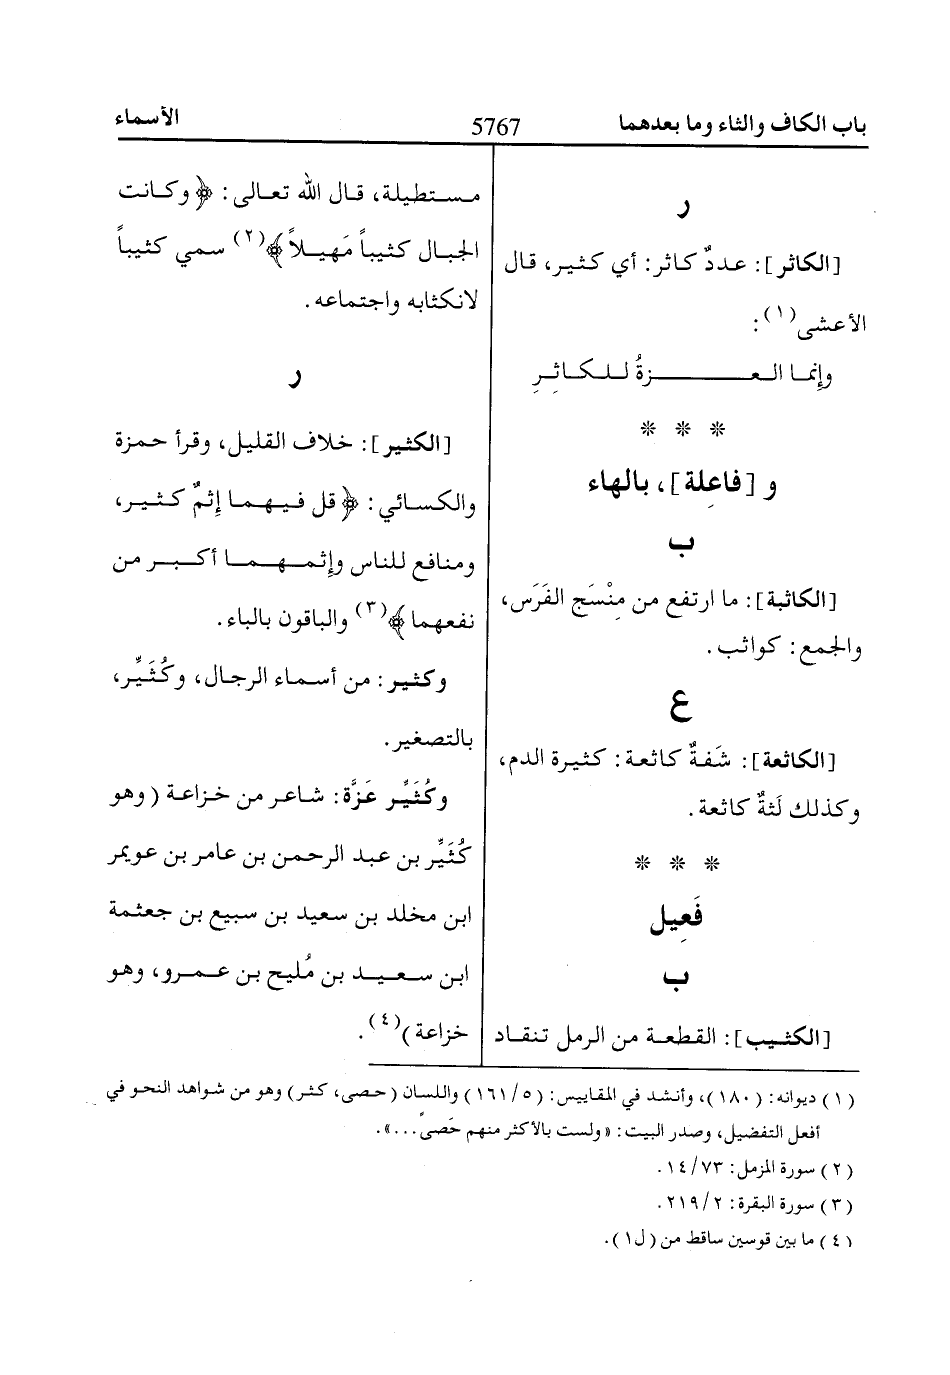 باب الكاف والثاء وما بعدهما 5767 الأسماء
ر
[الكاثر]: عددٌ كاثر: أي كثير، قال
الأعشى(١):
وإِنما العـــــــزةُ للـكـاثِـرِ
* * *
و [فاعِلة]، بالهاء
ب
[الكاثبة]: ما ارتفع من مِنْسَج الفَرَس،
والجمع: كواثب.
ع
[الكاثعة]: شَفةٌ كاثعة: كثيرة الدم،
وكذلك لَثةٌ كاثعة.
* * *
فَعِيل
ب
[الكثيب]: القطعة من الرمل تنقاد
مستطيلة، قال الله تعالى: ﴿وكانت
الجبال كثيباً مَهيلاً﴾(٢) سمي كثيباً
لانكثابه واجتماعه.
ر
[الكثير]: خلاف القليل، وقرأ حمزة
والكسائي: ﴿قل فيهما إِثمٌ كثير،
ومنافع للناس وإِثمهما أكبر من
نفعهما﴾(٣) والباقون بالباء.
وكثير: من أسماء الرجال، وكُثَيِّر،
بالتصغير.
وكُثَيِّر عَزَّة: شاعر من خزاعة (وهو
كُثَيِّر بن عبد الرحمن بن عامر بن عويمر
ابن مخلد بن سعيد بن سبيع بن جعثمة
ابن سعيد بن مُليح بن عمرو، وهو
خزاعة)(٤).
(١) ديوانه: (١٨٠)، وأنشد في المقاييس: (٥/١٦١) واللسان (حصى، كثر) وهو من شواهد النحو في
أفعل التفضيل، وصدر البيت: «ولست بالأكثر منهم حَصىً...».
(٢) سورة المزمل: ٧٣/١٤.
(٣) سورة البقرة: ٢/٢١٩.
(٤) ما بين قوسين ساقط من (ل١).